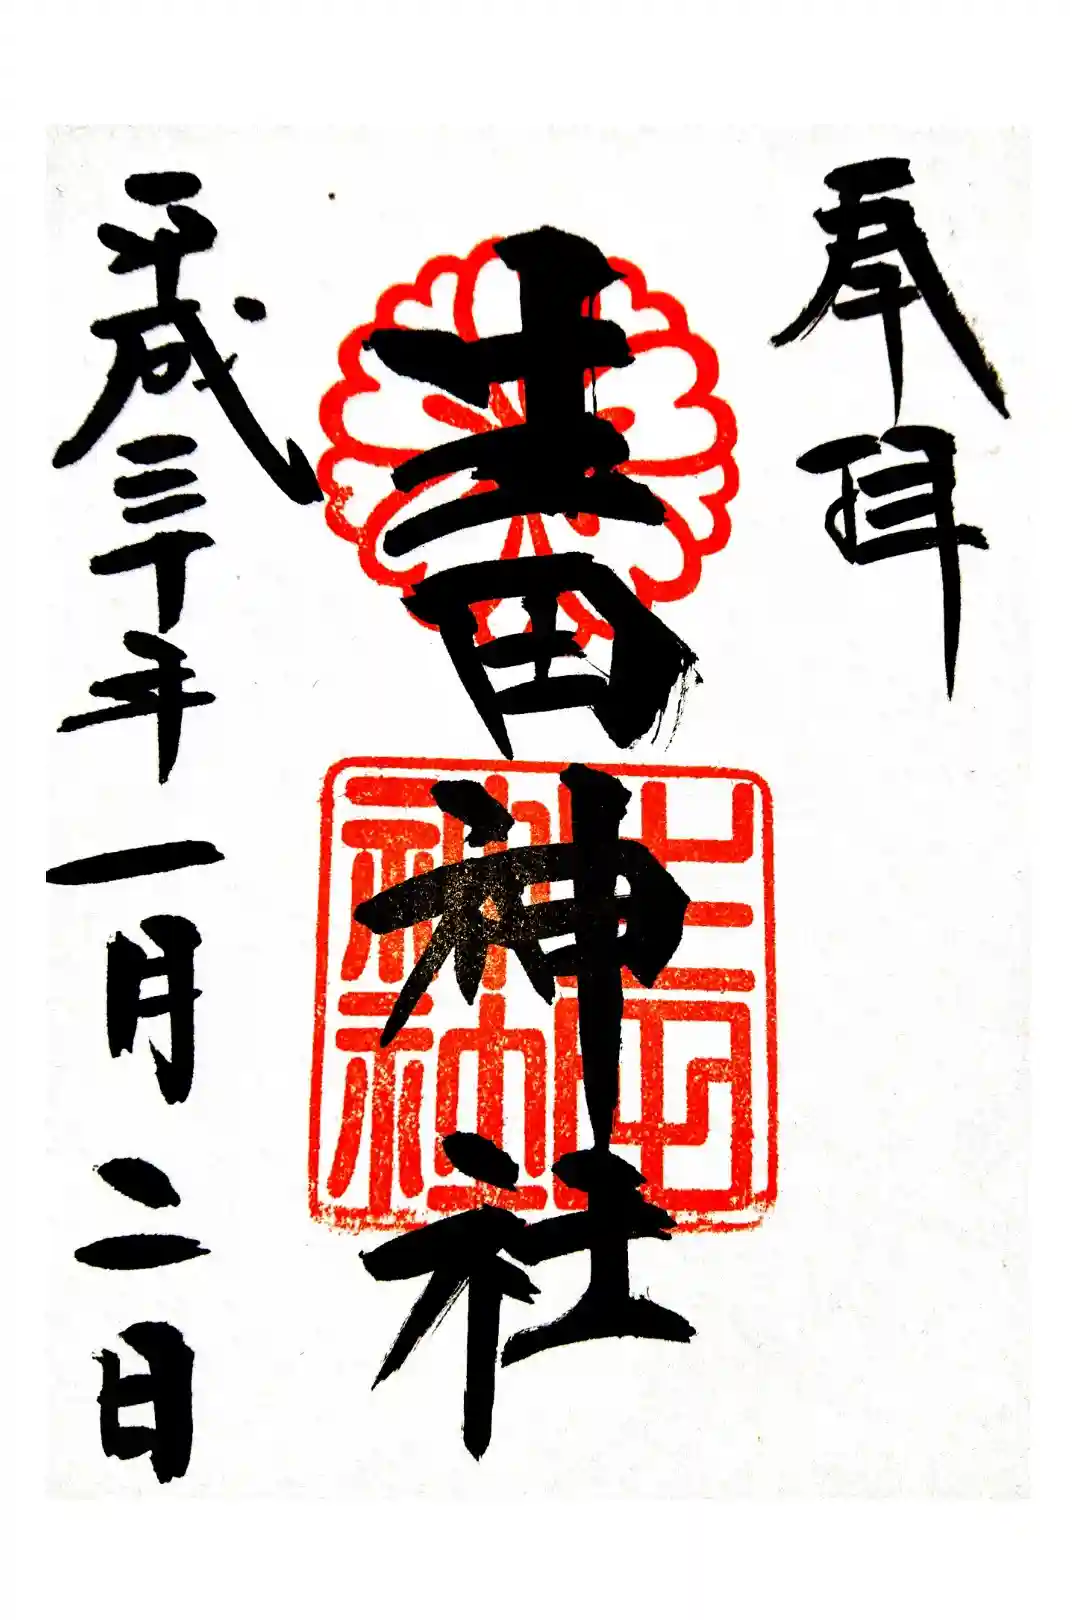 奉拝
生田神社
生田神社
平成三十年一月二日